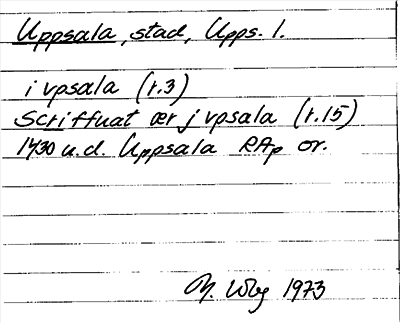 Uppsala, stad, Upps. l.
i vpsala (r.3)
Scriffuat ær j vpsala (r.15)
1430 u.d. Uppsala RAp or.
1973